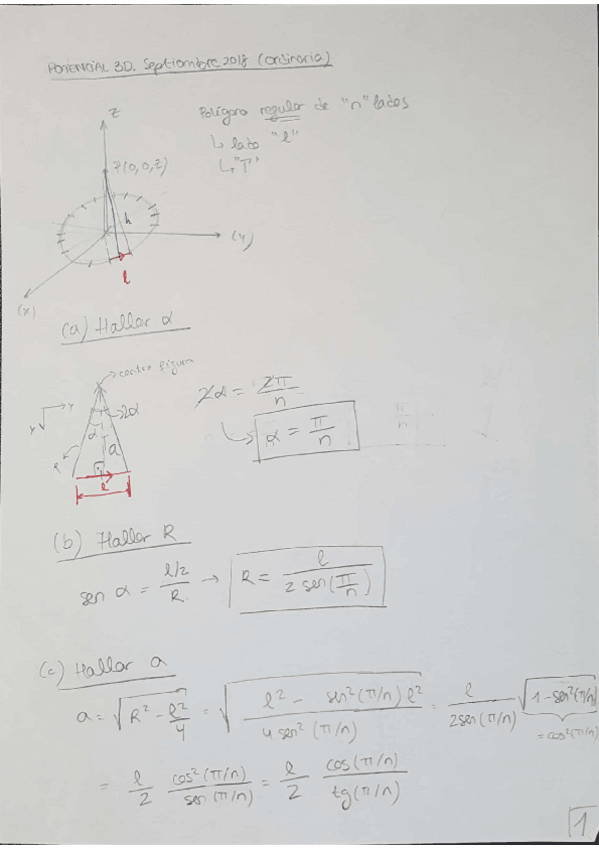 POTENCIAL 3D. Septiembre 2018 (ordinaria)
Polígono regular de "n" lados
↳ lado "l"
↳ "T"
z
P(0,0,z)
h
(y)
l
(x)
(a) Hallar α
centro figura
2α
α
a
R
l
2α = 2π/n
α = π/n
π/n
(b) Hallar R
sen α = (l/2)/R → R = l/(2 sen(π/n))
(c) Hallar a
a = √(R² - l²/4) = √((l² - sen²(π/n) l²)/(4 sen²(π/n))) = l/(2sen(π/n)) √(1-sen²(π/n))
= cos²(π/n)
= l/2 cos²(π/n)/sen(π/n) = l/2 cos(π/n)/tg(π/n)
1